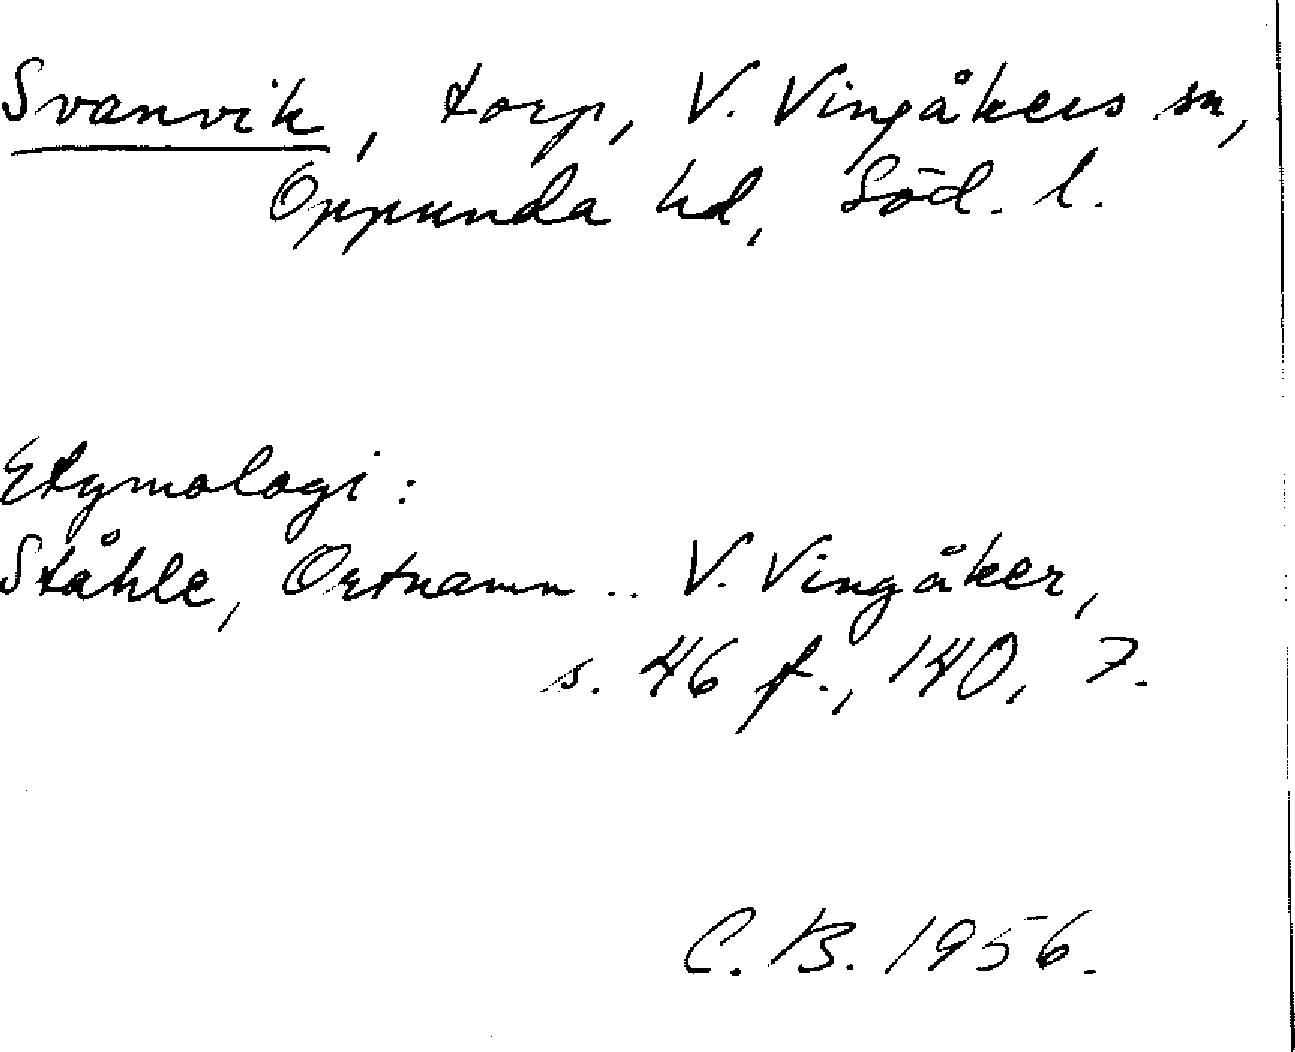 Svanvik, torp, V. Vingåkers sn,
Oppunda hd, Söd. l.
Etymologi:
Ståhle, Ortnamn .. V. Vingåker,
s. 46 f., 140, 7.
C. B. 1956.